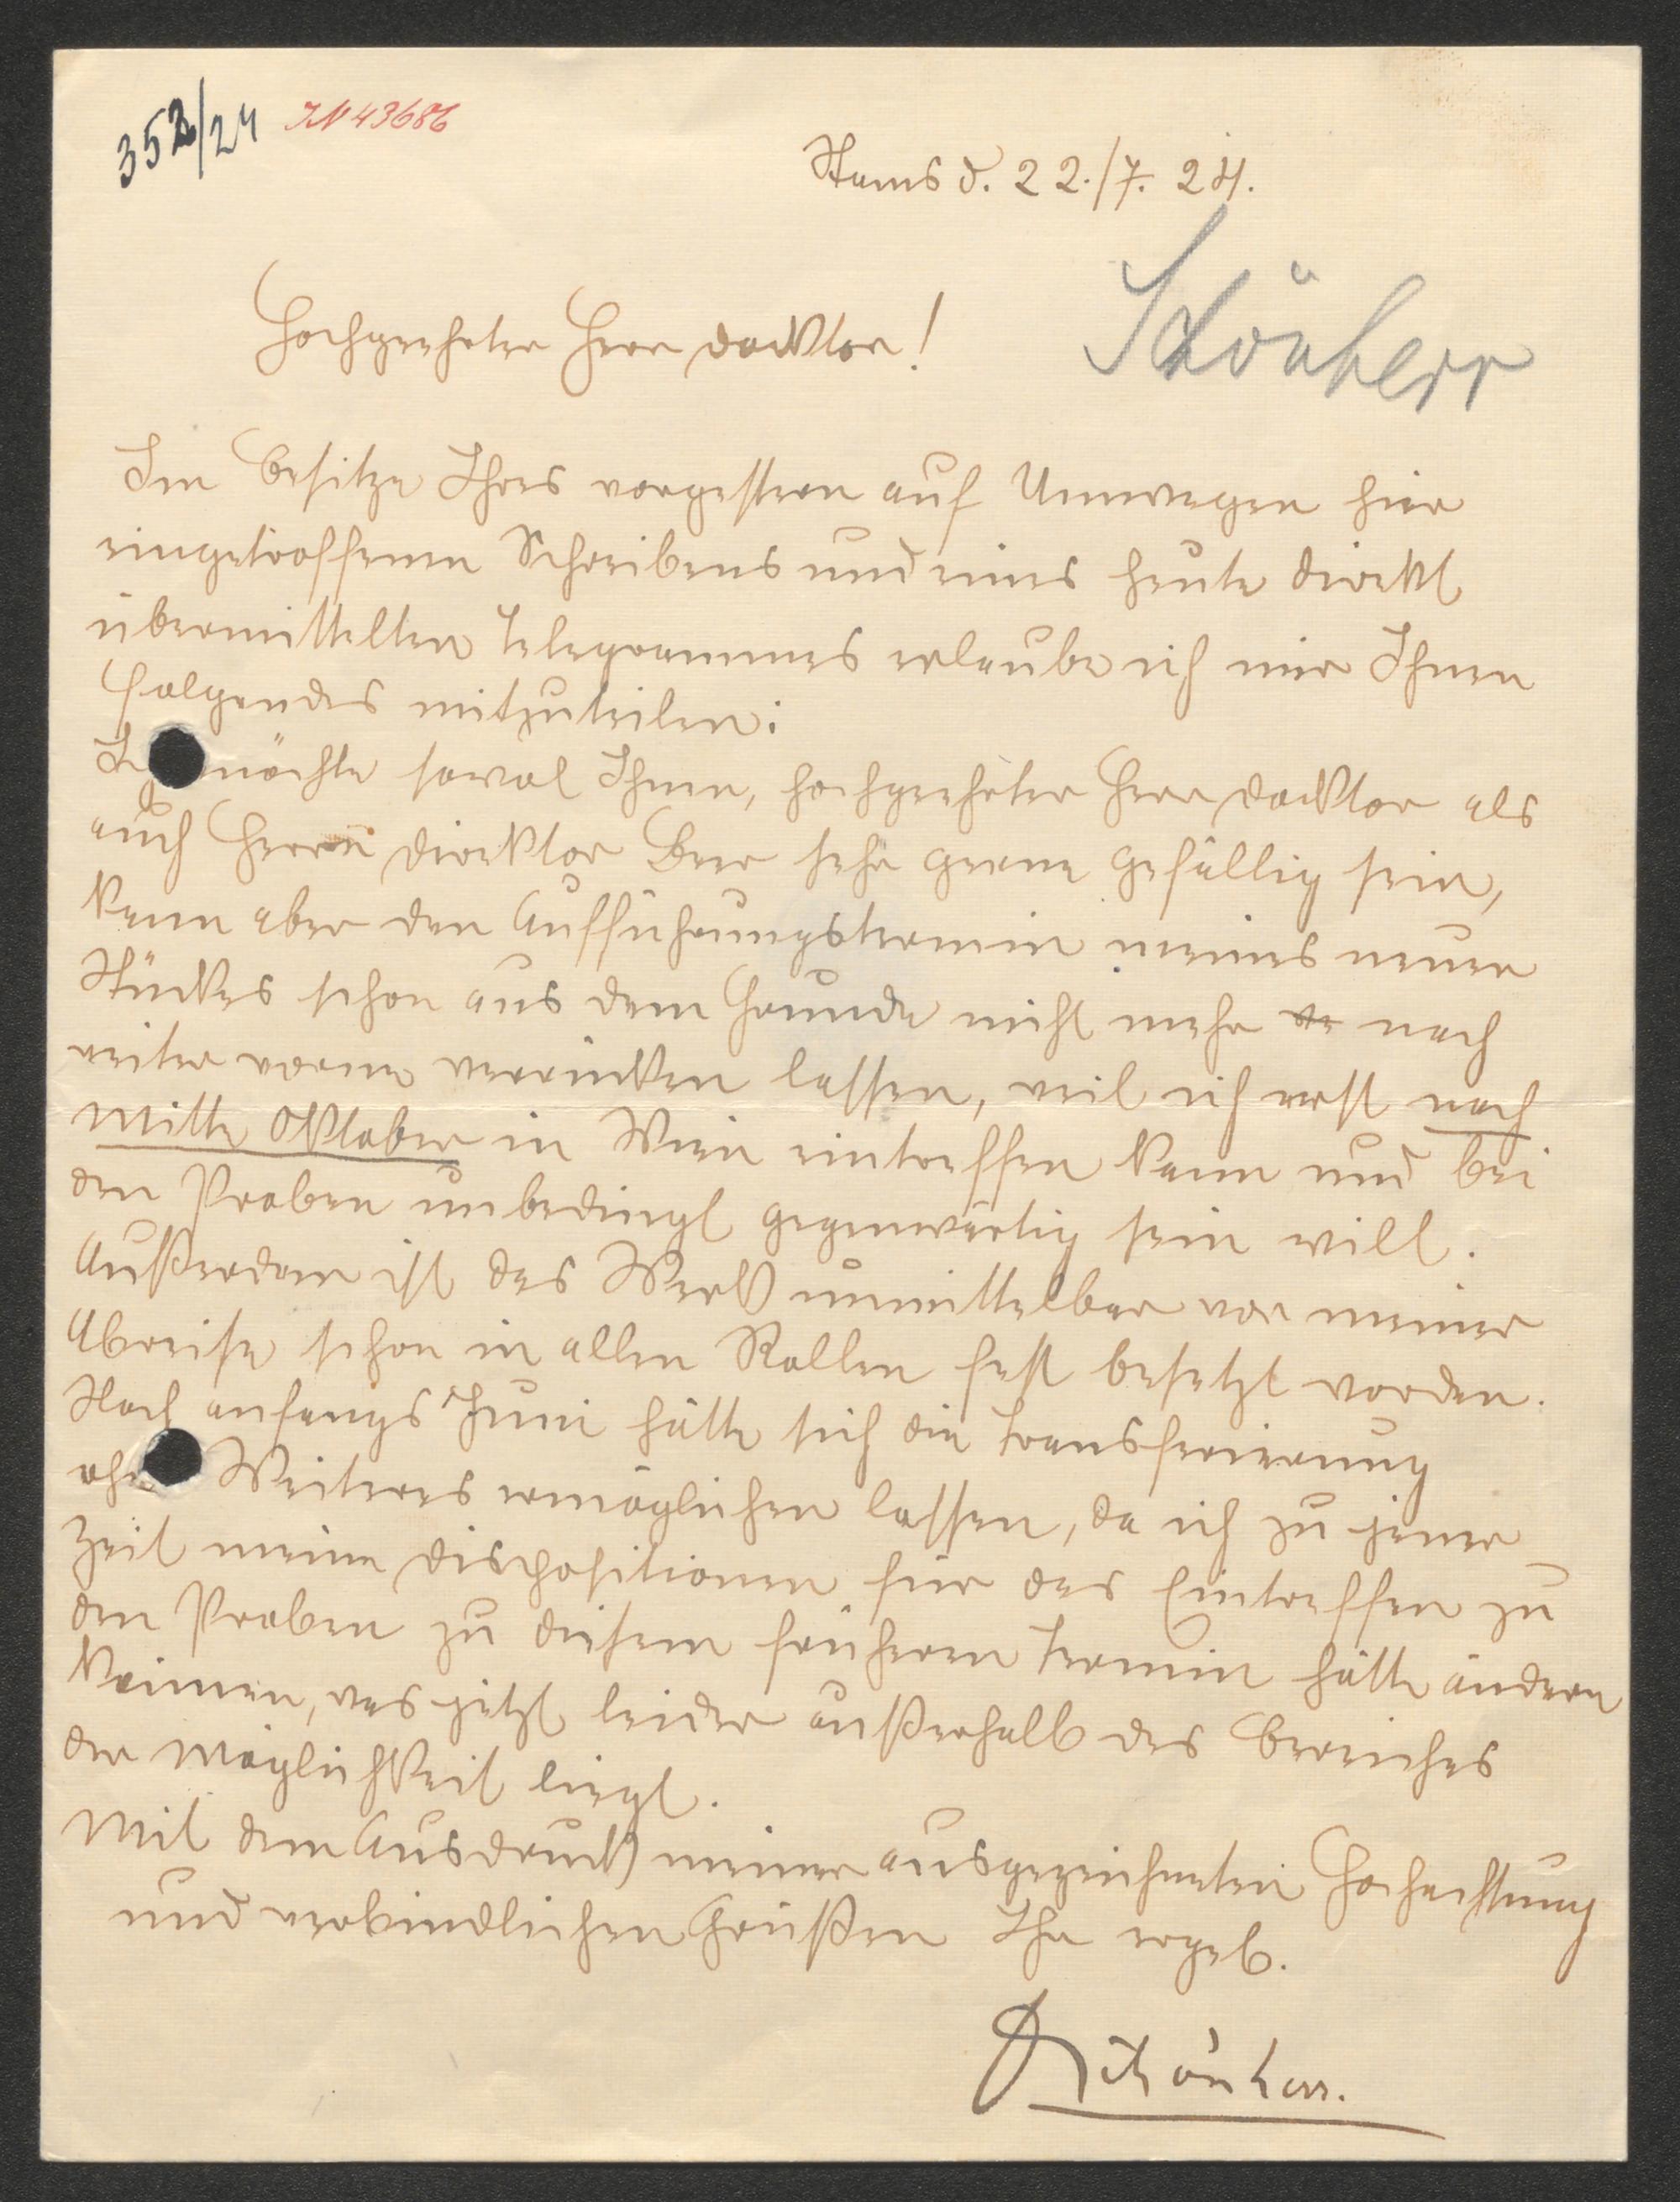 352/24 IN 43686
Stams d. 22./7. 24.
Schönherr
Hochgeehrter Herr Docktor!
Im Besitze Ihres vorgestern auf Umwegen hier
eingetroffenen Schreibens und eines heute direkt
übermittelten Telegrammes erlaube ich mir Ihnen
Folgendes mitzuteilen:
Ich möchte sowol Ihnen, hochgeehrter Herr Docktor als
auch Herrn Direktor Beer sehr gerne gefällig sein,
kann aber den Aufführungstermin meines neuen
Stückes schon aus dem Grunde nicht mehr nach
weiter vorne verrücken lassen, weil ich erst nach
Mitte Oktober in Wien eintreffen kann und bei
den Proben unbedingt gegenwärtig sein will.
Außerdem ist das Werk unmittelbar vor meiner
Abreise schon in allen Rollen fest besetzt worden.
Noch anfangs Juni hätte sich die Transferierung
ohne Weiteres ermöglichen lassen, da ich zu jener
Zeit meine Dispositionen für das Eintreffen zu
den Proben zu diesem früheren Termin hätte ändern
können, was jetzt leider außerhalb des Bereiches
der Möglichkeit liegt.
Mit dem Ausdruck meiner ausgezeichneten Hochachtung
und verbindlichen Grüßen Ihr ergeb.
Schönherr.